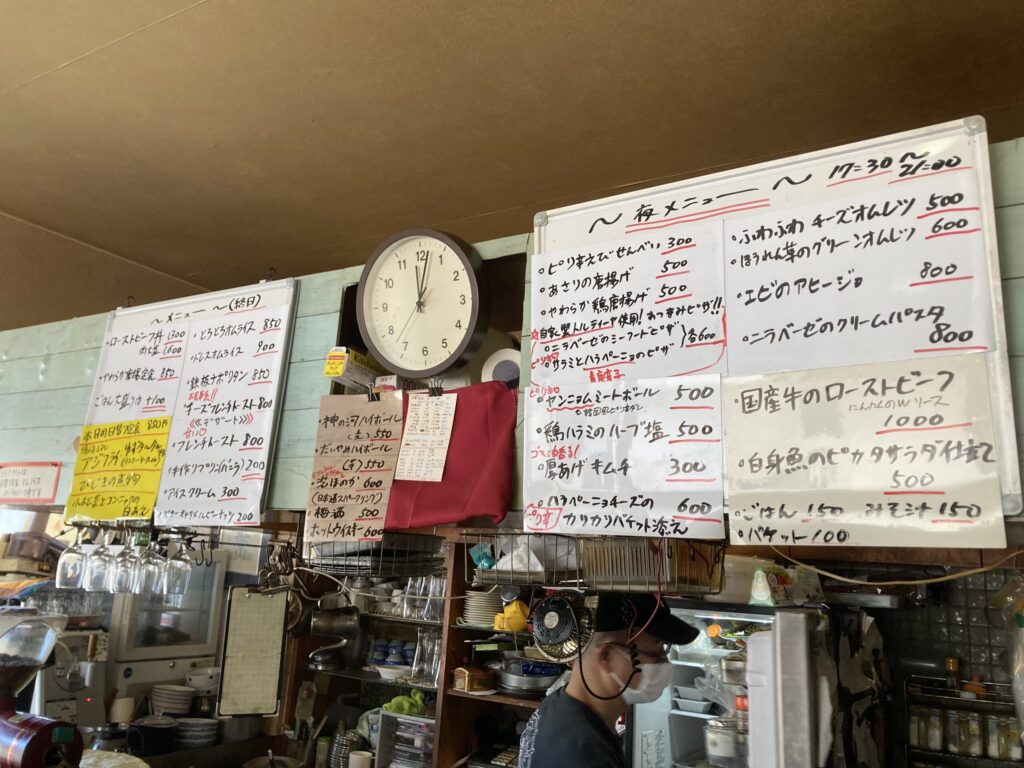 〜 メニュー 〜 (終日)
・ローストビーフ丼 1300
肉大盛 1600
・やわらか唐揚定食 850
・ごはん大盛りは +100
本日の日替り定食 850円
アジフライ
ひじきの煮物
小松菜とコンニャクの
白あえ
・とろとろオムライス 850
・ドレスオムライス 900
・鉄板ナポリタン 850
・チーズフレンチトースト 800
・フレンチトースト 800
・手作りプリン(バニラ) 200
・アイスクリーム 300
・バターキャラメルピーナッツ 200
12
1
2
3
4
5
6
7
8
9
10
11
・神の河ハイボール
(麦) 550
・だいやめハイボール
(芋) 550
・澪ほのか 600
(日本酒スパークリング)
・梅酒 500
・ホットウイスキー 600
〜 夜メニュー 〜 17:30〜21:00
・ピリ辛えびせんべい 300
・あさりの唐揚げ 500
・やわらか鶏唐揚げ 500
自家製トルティーヤ使用!おつまみピザ!!
・ニラベーゼのシーフードピザ
・サラミとハラペーニョのピザ
各600
ピリ辛
・ヤンニョムミートボール 500
韓国風ピリ辛ダレ
・鶏ハラミのハーブ塩 500
ゴマ油香る!
・厚あげキムチ 300
・ハラペーニョチーズの 600
カリカリバケット添え
ピリ辛
・ふわふわ チーズオムレツ 500
・ほうれん草のグリーンオムレツ 600
・エビのアヒージョ 800
・ニラベーゼのクリームパスタ
800
・国産牛のローストビーフ
にんにくのWソース
1000
・白身魚のピカタサラダ仕立て
500
・ごはん 150 みそ汁 150
・バケット 100